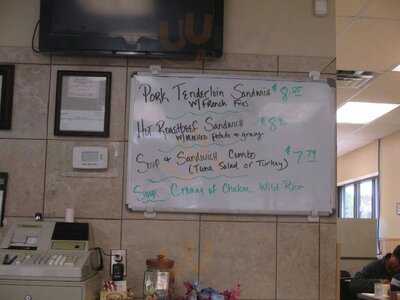 Pork Tenderloin Sandwich $8.95
w/ French Fries
Hot Roastbeef Sandwich $8
w/ mashed potato & gravy
Soup & Sandwich Combo $7.79
(Tuna Salad or Turkey)
Soup: Creamy of Chicken Wild Rice